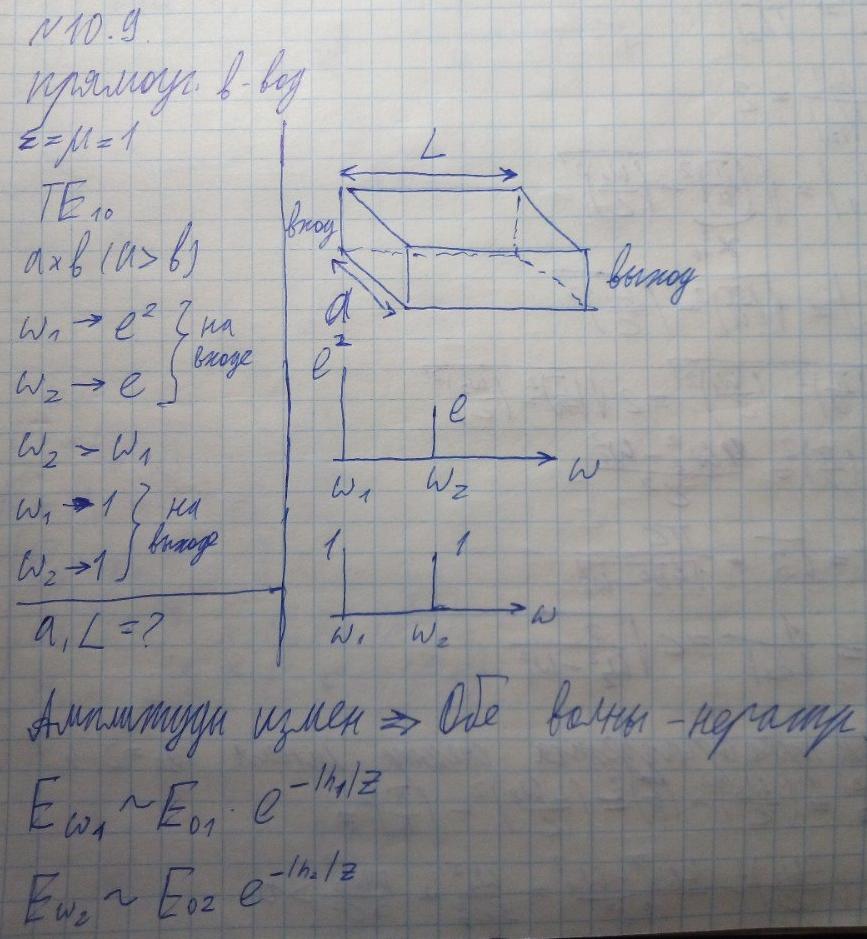 №10.9.
прямоуг. в-вод
ε=μ=1
TE₁₀
a×b (a>b)
ω₁ → e² } на входе
ω₂ → e
ω₂ > ω₁
ω₁ → 1 } на выходе
ω₂ → 1
a, L = ?
L
вход
выход
a
e²
e
ω₁ ω₂ ω
1 1
ω₁ ω₂ ω
Амплитуды измен ⇒ Обе волны - нераспр
E_ω₁ ~ E₀₁ · e^(-|h₁|z)
E_ω₂ ~ E₀₂ e^(-|h₂|z)